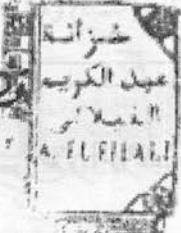 خزانة
عبد الكريم
الفيلالي
A. EL FILALI